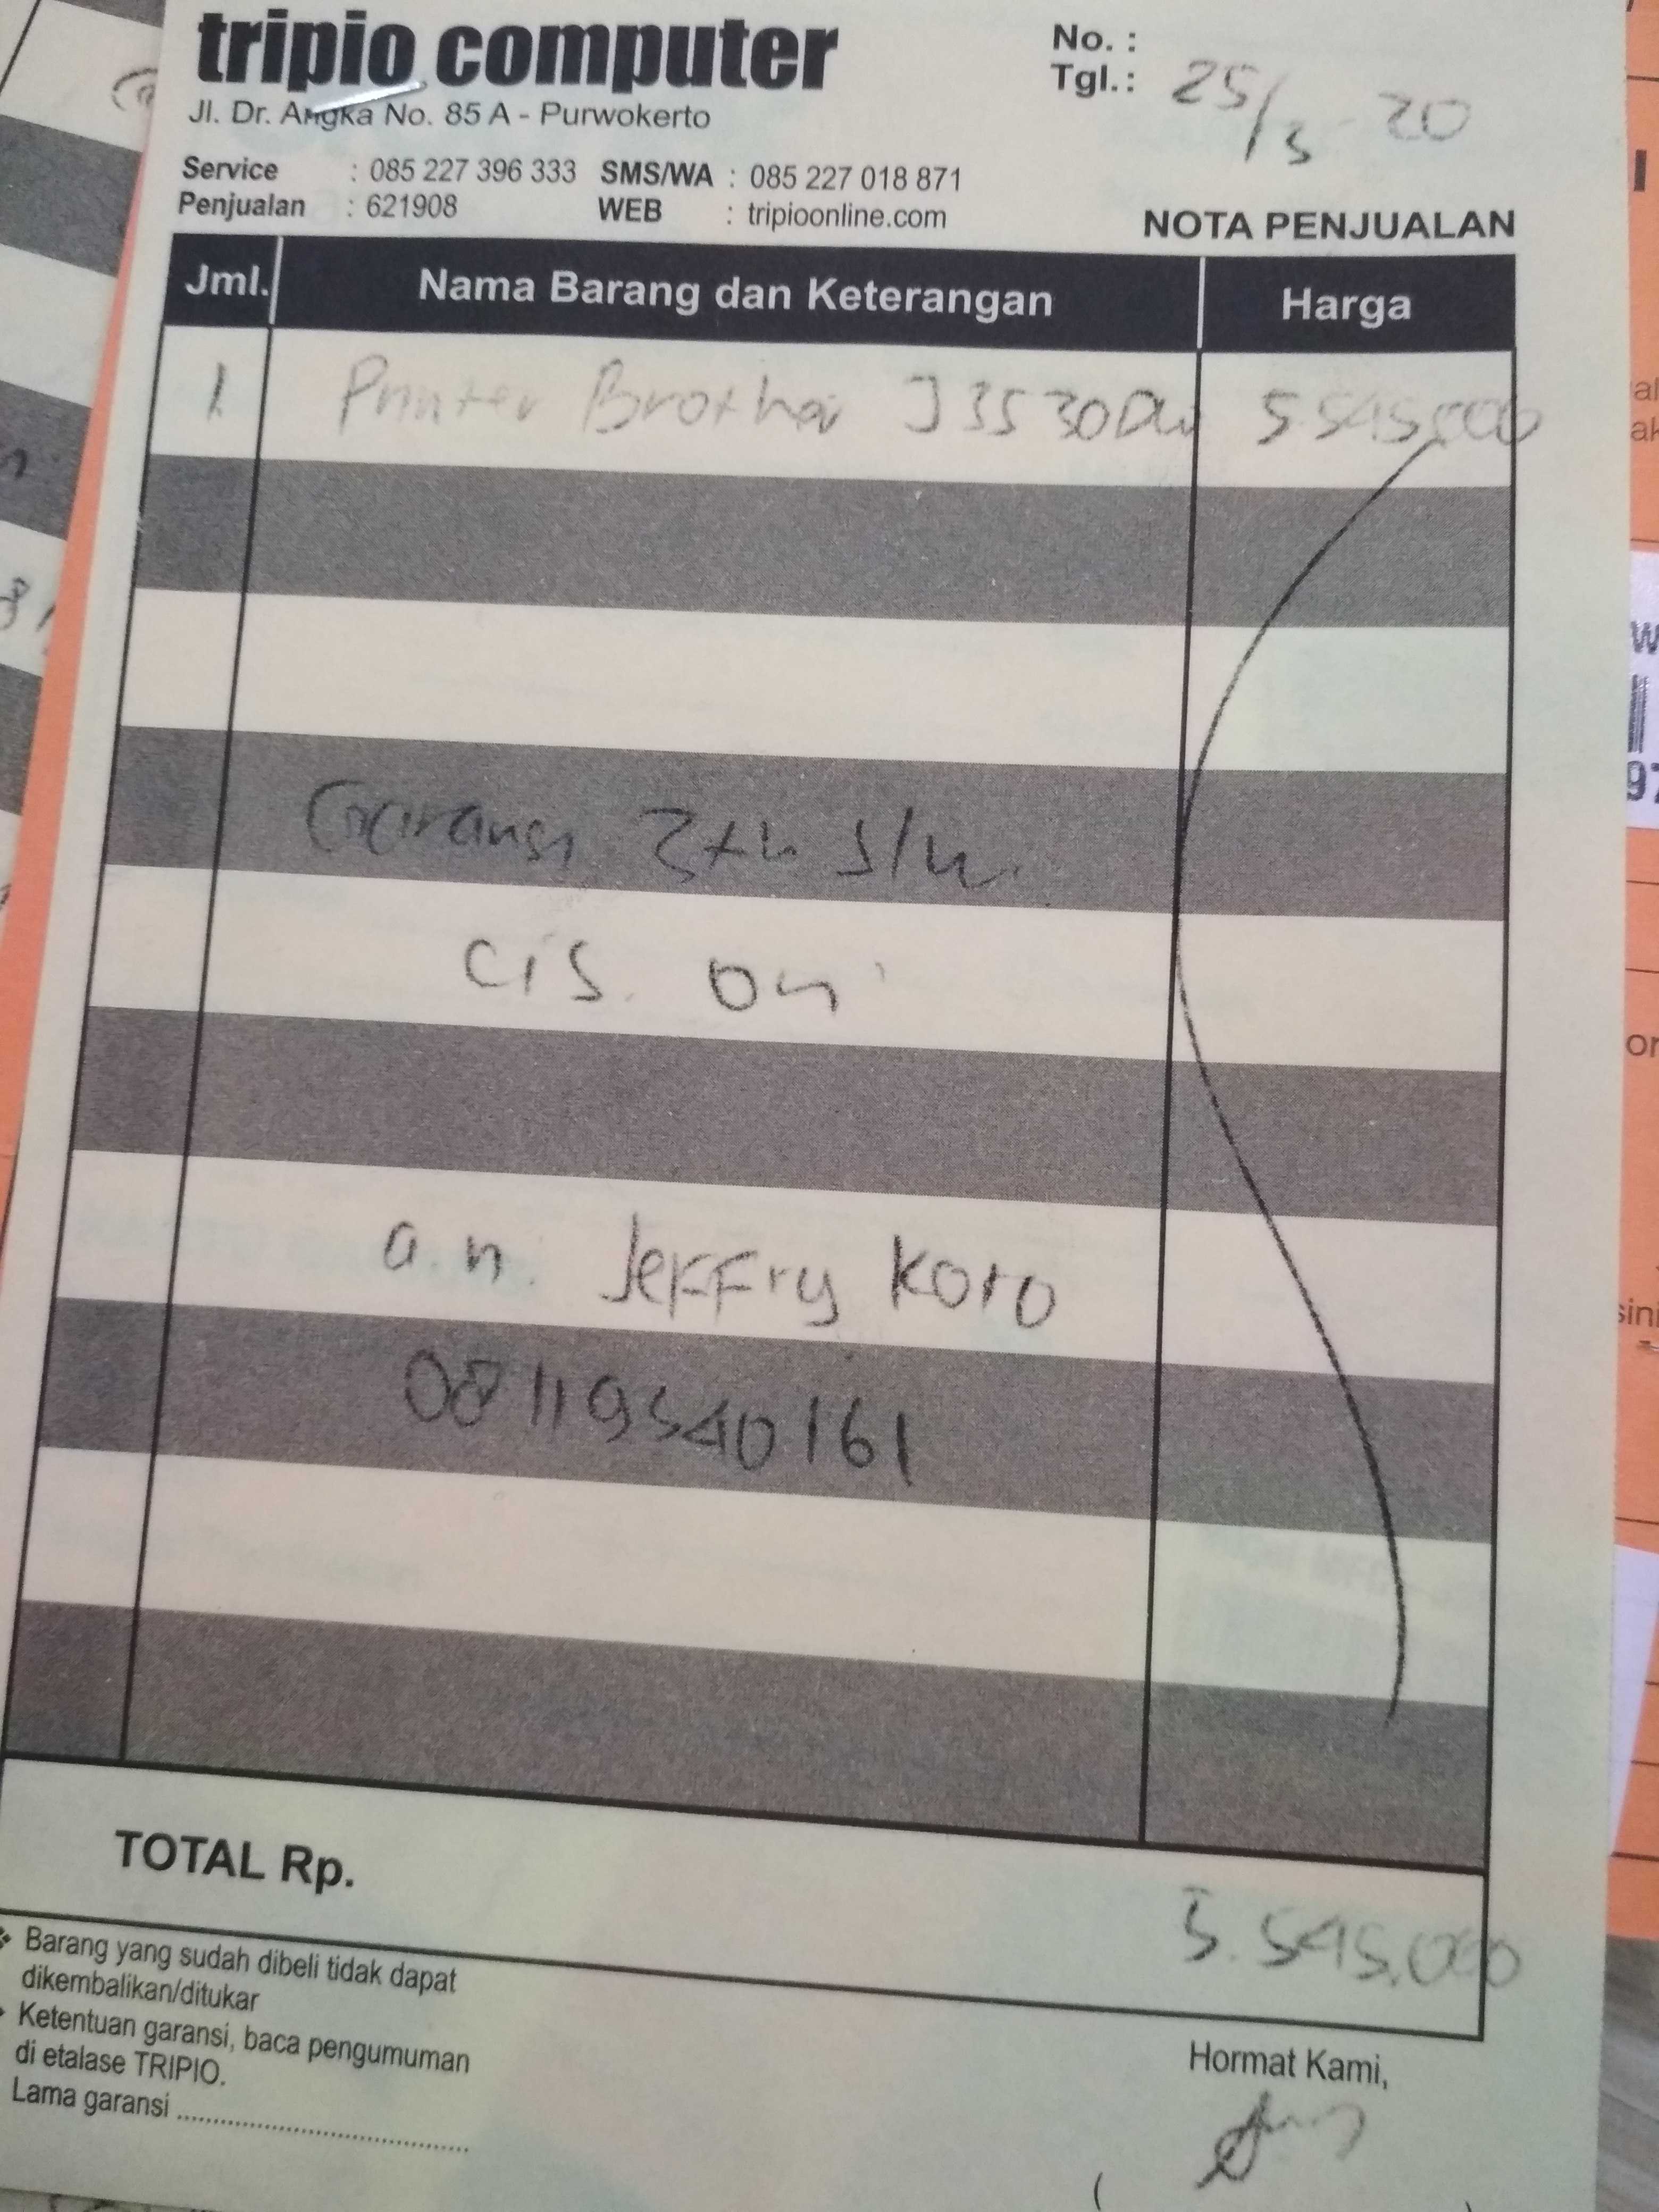 tripio computer
Jl. Dr. Angka No. 85 A - Purwokerto
No. :
Tgl. : 25/3-20
Service : 085 227 396 333 SMS/WA : 085 227 018 871
Penjualan : 621908 WEB : tripioonline.com
NOTA PENJUALAN
Jml. Nama Barang dan Keterangan Harga
1. Printer Brother J3530DW 5.545.000
Garansi 3th
cis. ori
a.n. Jeffry Koro
08119540161
TOTAL Rp. 5.545.000
Barang yang sudah dibeli tidak dapat
dikembalikan/ditukar
Ketentuan garansi, baca pengumuman
di etalase TRIPIO.
Lama garansi
Hormat Kami,